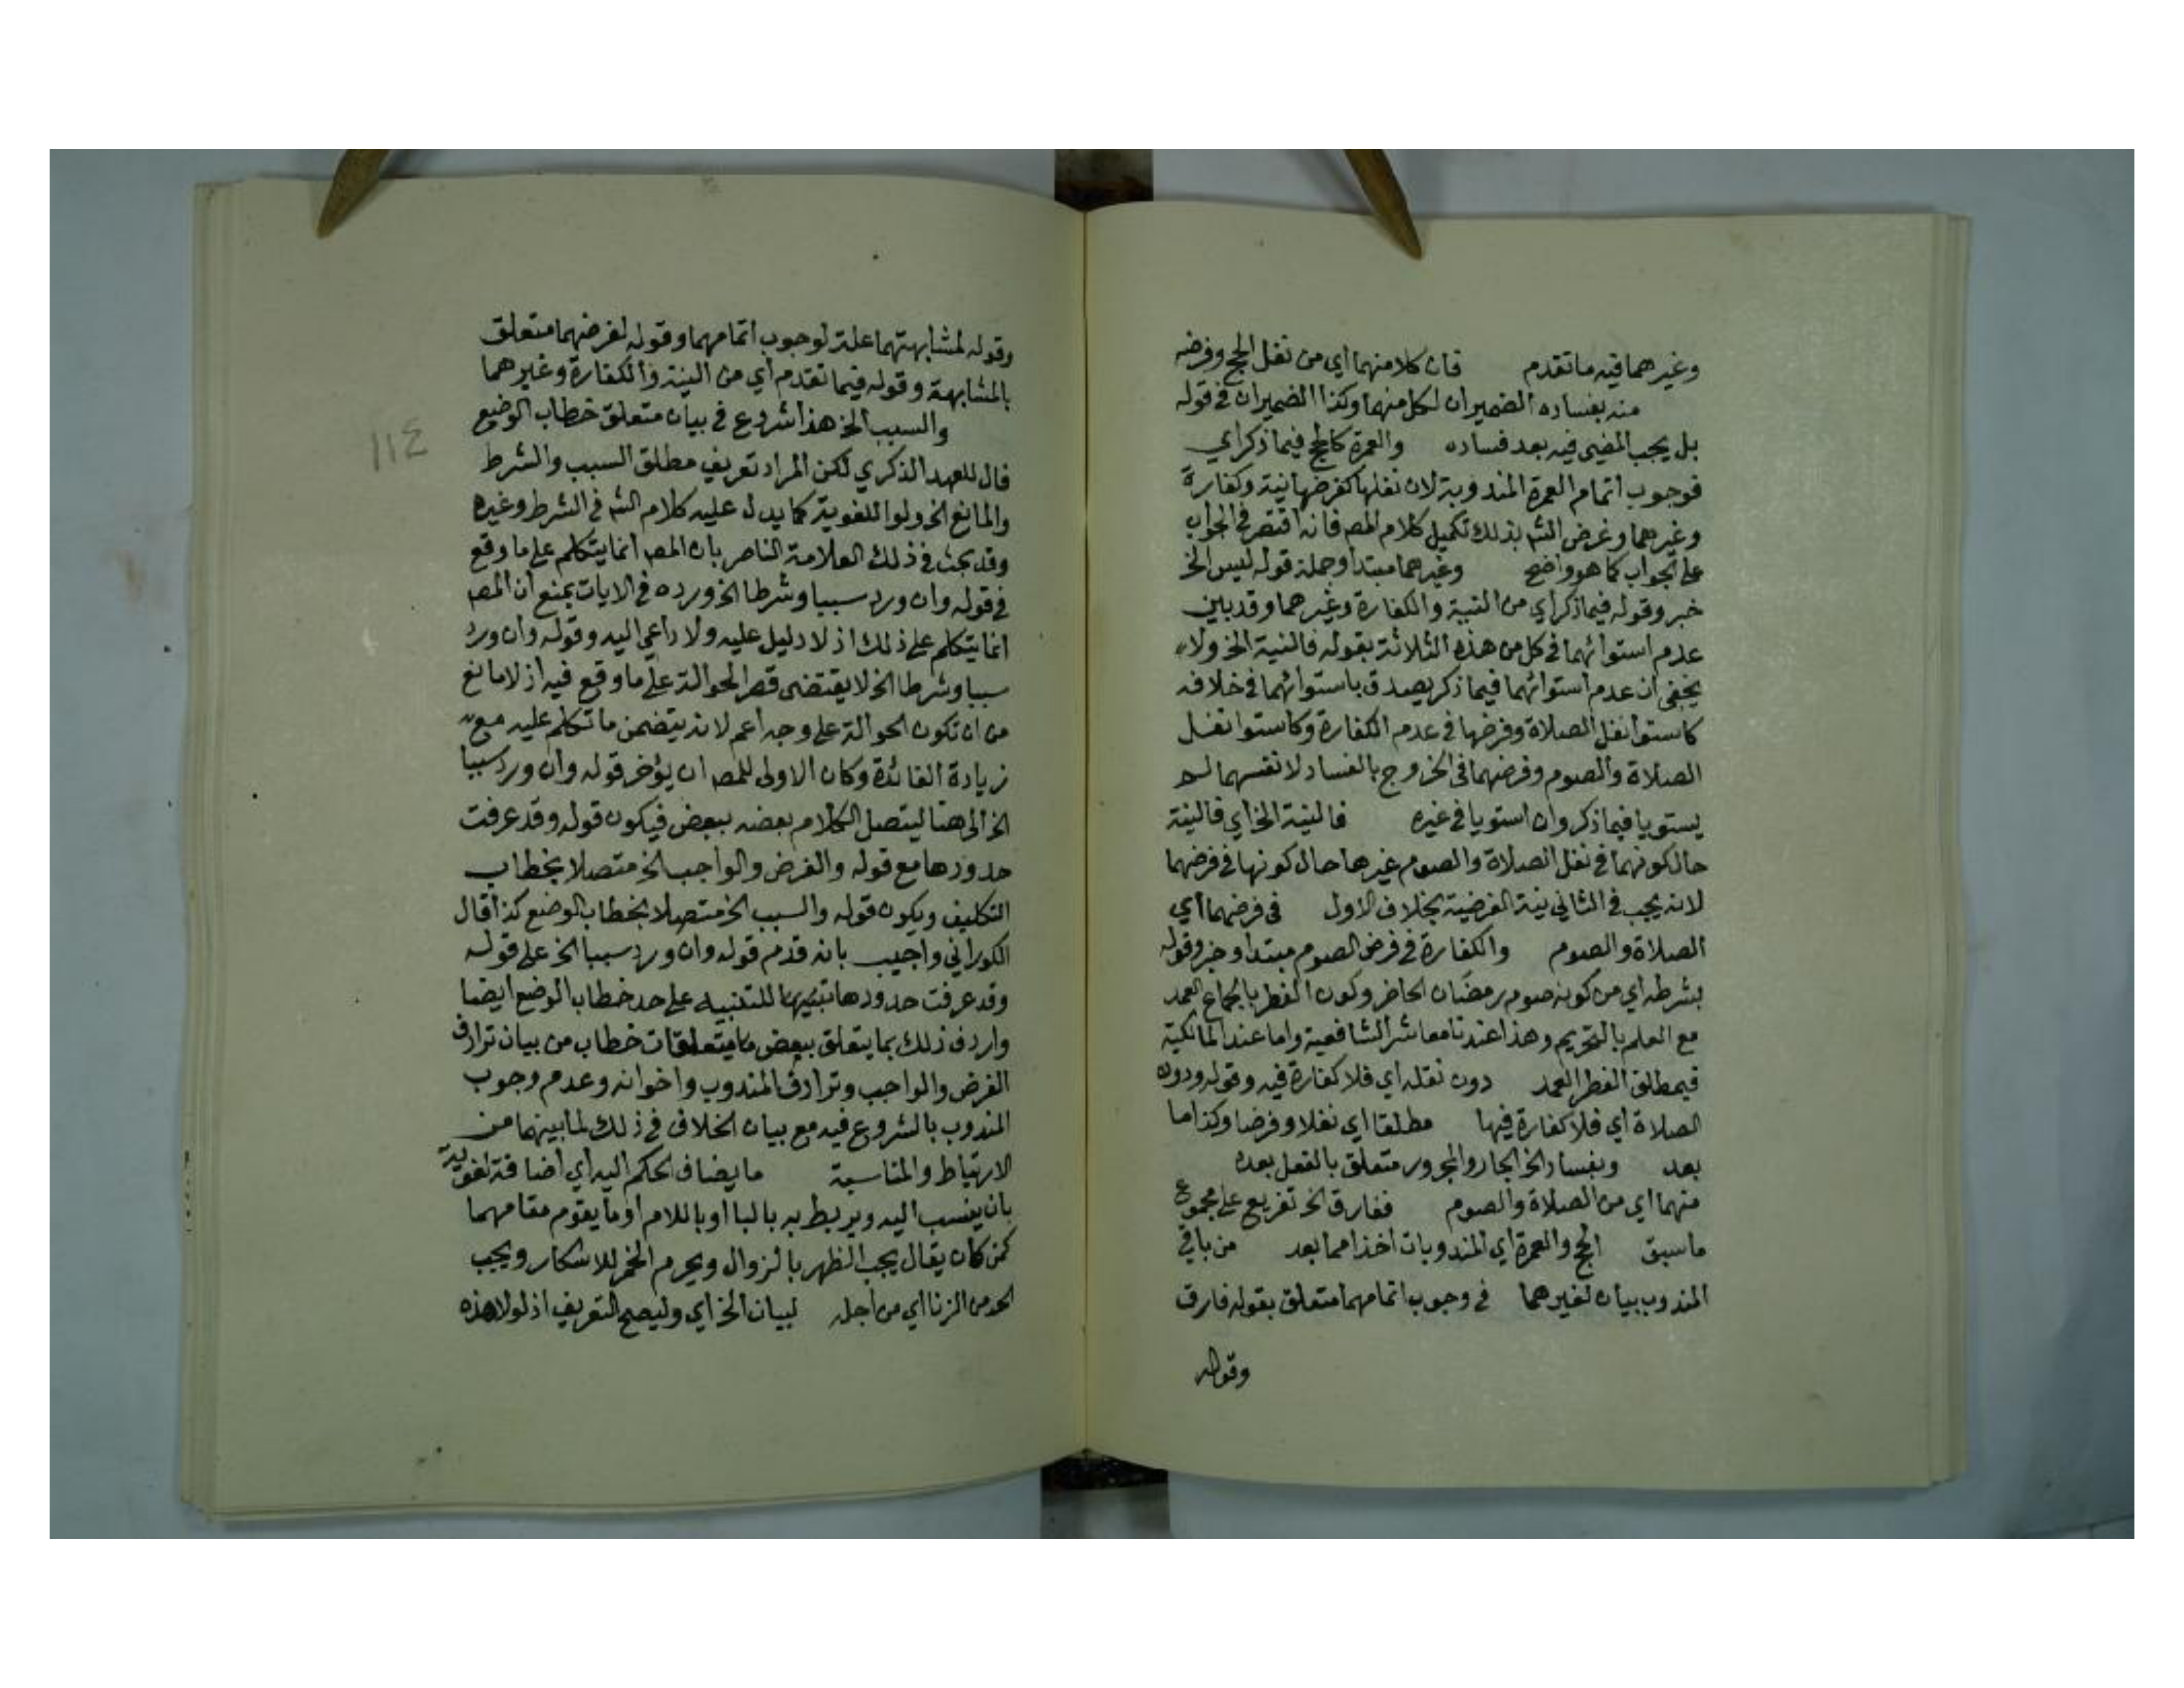 وغيرهما فيه ما تقدم فان كلا منهما اي من نفل الحج وفرضه
منه بفساده الضميران لكل منهما وكذا الضميران في قوله
بل يجب المضي فيه بعد فساده والعمرة كالحج فيما ذكر اي
فوجوب اتمام العمرة المندوبة لان نفلها كفرضها نية وكفارة
وغيرهما وغرض الش بذلك تكميل كلام المص فانه اقتصر في الجواب
على الجواب كما هو واضح وغيرهما مبتدا وجملة قوله ليس الخ
خبر وقوله فيما ذكر اي من النية والكفارة وغيرهما وقد بين
عدم استوائهما في كل من هذه الثلاثة بقوله فالنية الخ ولا
يخفى ان عدم استوائهما فيما ذكر يصدق باستوائهما في خلافه
كاستوا نفل الصلاة وفرضها في عدم الكفارة وكاستوا نفل
الصلاة والصوم وفرضهما في الخروج بالفساد لانفسهما لم
يستويا فيما ذكر وان استويا في غيره فالنية الخ اي فالنية
حال كونهما في نفل الصلاة والصوم غيرها حال كونها في فرضهما
لانه يجب في الثاني نية الفرضية بخلاف الاول في فرضهما اي
الصلاة والصوم والكفارة في فرض الصوم مبتدا وخبر وقوله
بشرطه اي من كونه صوم رمضان الحاضر وكون الفطر بالجماع العمد
مع العلم بالتحريم وهذا عندنا معاشر الشافعية واما عند المالكية
فبمطلق الفطر العمد دون نفله اي فلا كفارة فيه وقوله ودون
الصلاة اي فلا كفارة فيها مطلقا اي نفلا وفرضا وكذا ما
بعد وبفساد الخ الجار والمجرور متعلق بالفعل بعده
منهما اي من الصلاة والصوم ففارق الخ تفريع على مجموع
ما سبق الحج والعمرة اي المندوبات اخذا مما بعد من باقي
المندوب بيان لغيرهما في وجوب اتمامهما متعلق بقوله فارق
وقوله
وقوله لمشابهتهما علة لوجوب اتمامهما وقوله لفرضهما متعلق
بالمشابهة وقوله فيما تقدم اي من النية والكفارة وغيرهما
والسبب الخ هذا شروع في بيان متعلق خطاب الوضع
114
فال للعهد الذكري لكن المراد تعريف مطلق السبب والشرط
والمانع الخ ولو اللغوية كما يدل عليه كلام الش في الشرط وغيره
وقد بحث في ذلك العلامة الناصر بان المص انما يتكلم على ما وقع
في قوله وان ورد سببا وشرطا الخ ورده في الايات بمنع ان المص
انما يتكلم على ذلك اذ لا دليل عليه ولا داعي اليه وقوله وان ورد
سببا وشرطا الخ لا يقتضى قصر الحوالة على ما وقع فيه اذ لا مانع
من ان تكون الحوالة على وجه اعم لانه يتضمن ما تكلم عليه مع
زيادة الفائدة وكان الاولى للمص ان يؤخر قوله وان ورد سببا
الخ الى هنا ليتصل الكلام بعضه ببعض فيكون قوله وقد عرفت
حدودها مع قوله والفرض والواجب الخ متصلا بخطاب
التكليف ويكون قوله والسبب الخ متصلا بخطاب الوضع كذا قال
الكوراني واجيب بانه قدم قوله وان ورد سببا الخ على قوله
وقد عرفت حدودها تنبيها للتنبيه على حد خطاب الوضع ايضا
واردف ذلك بما يتعلق ببعض متعلقات خطاب من بيان ترادف
الفرض والواجب وترادف المندوب واخوانه وعدم وجوب
المندوب بالشروع فيه مع بيان الخلاف في ذلك لما بينهما من
الارتباط والمناسبة ما يضاف الحكم اليه اي اضافة لغوية
بان ينسب اليه ويربط به بالبا او باللام او ما يقوم مقامهما
كمن كان يقال يجب الظهر بالزوال ويحرم الخمر للاسكار ويجب
الحد من الزنا اي من اجله لبيان الخ اي وليصح التعريف اذ لولا هذه